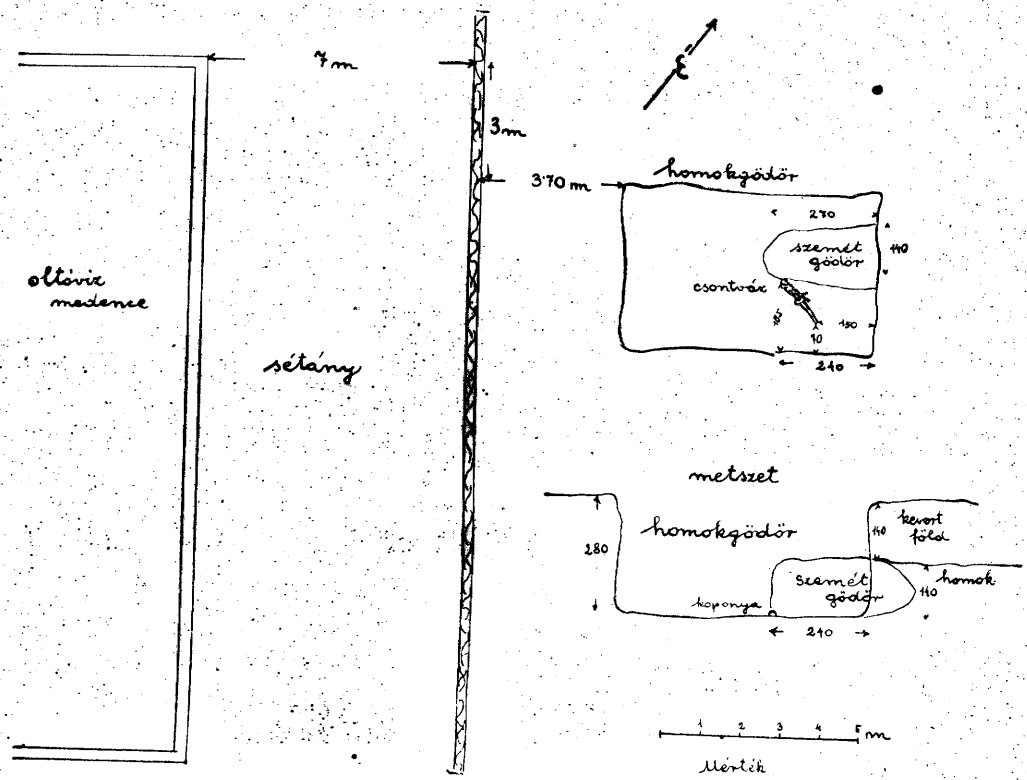 7 m
É
3 m
3.70 m
homokgödör
270
szemét
gödör
140
csontváz
150
70
240
oltóviz
medence
sétány
metszet
280
homokgödör
140
kevert
föld
szemét
gödör
homok
110
koponya
240
1 2 3 4 5 m
Mérték